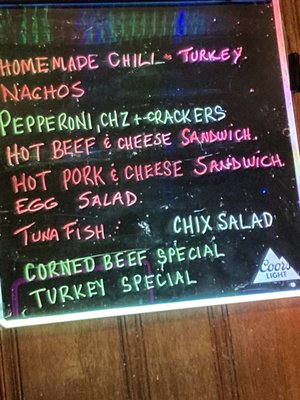 HOMEMADE CHILI - TURKEY
NACHOS
PEPPERONI, CHZ + CRACKERS
HOT BEEF & CHEESE SANDWICH.
HOT PORK & CHEESE SANDWICH.
EGG SALAD
TUNA FISH. CHIX SALAD
CORNED BEEF SPECIAL
TURKEY SPECIAL
Coors
LIGHT